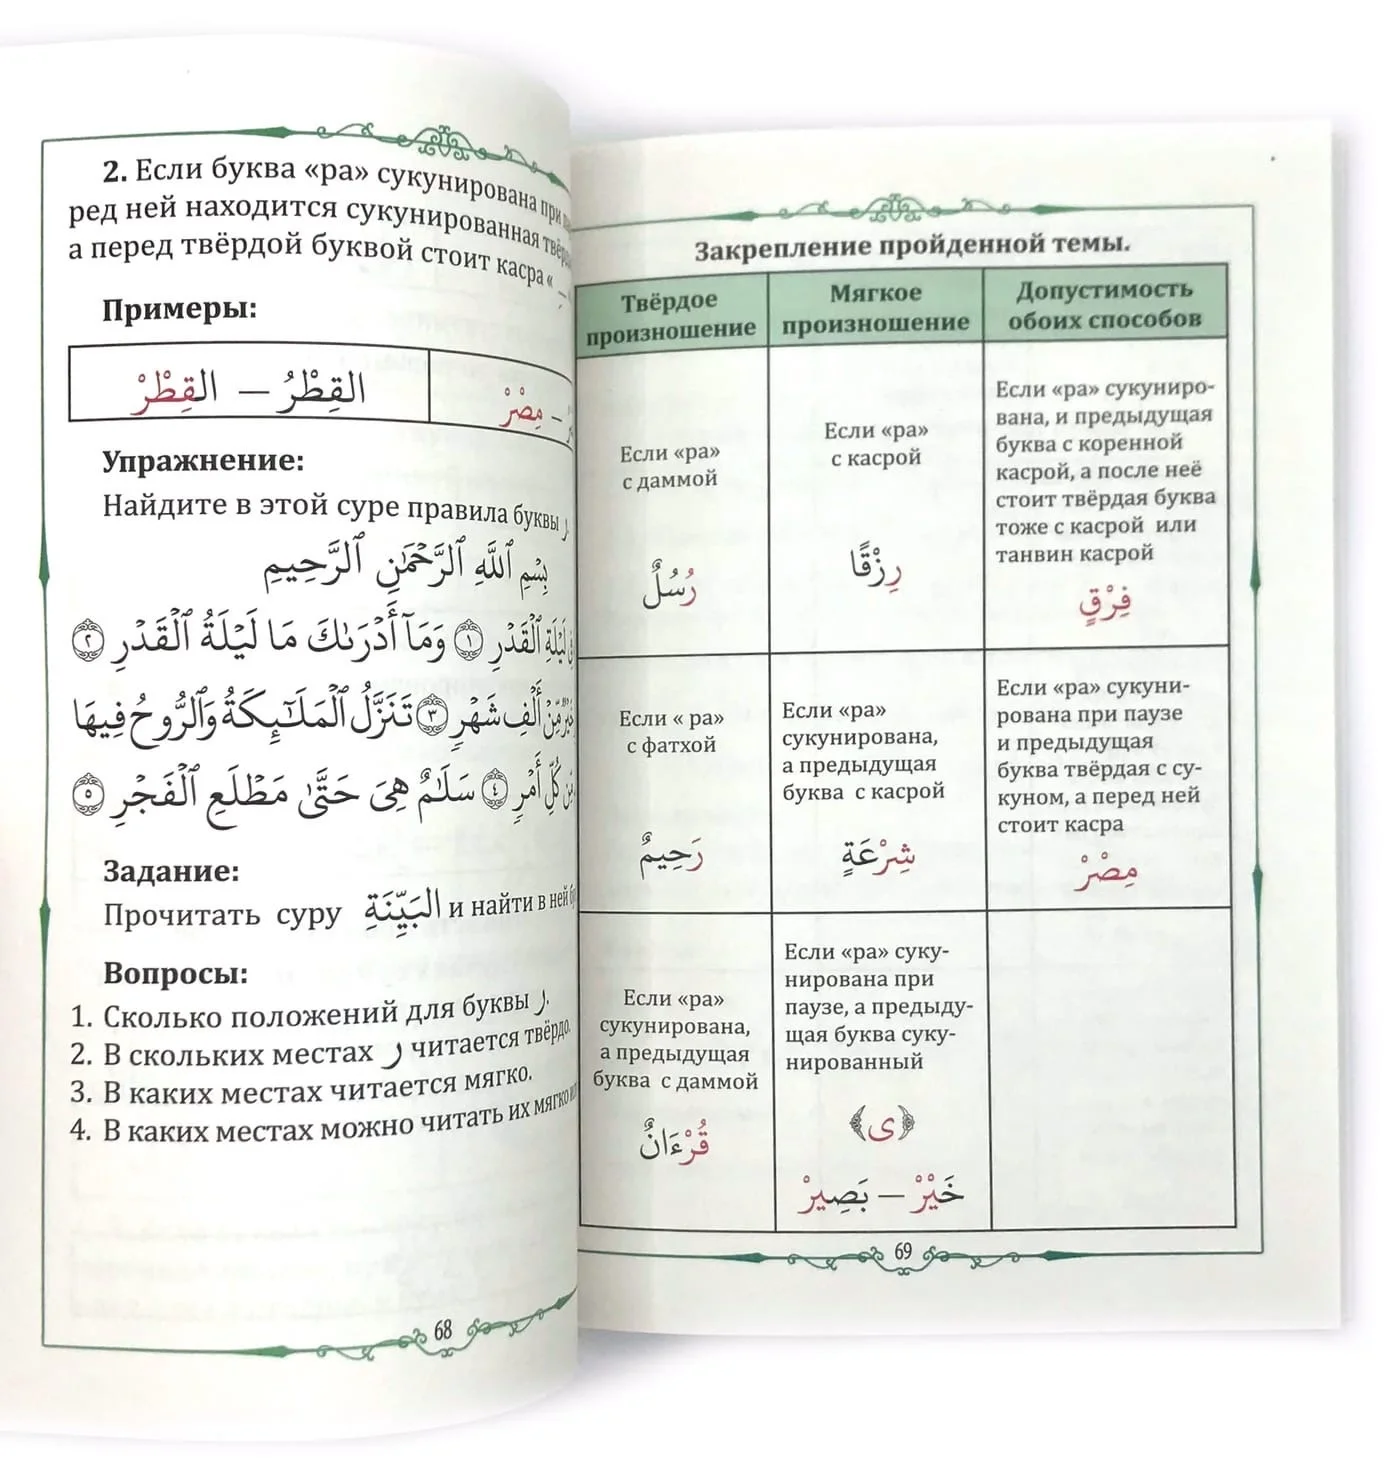 2. Если буква «ра» сукунирована при
ред ней находится сукунированная
а перед твёрдой буквой стоит касра «ـِ»
Примеры:
القِطْرُ – القِطْرْ
– مِصْرْ
Упражнение:
Найдите в этой суре правила буквы ر.
بِسْمِ ٱللَّهِ ٱلرَّحْمَٰنِ ٱلرَّحِيمِ
لَيْلَةِ ٱلْقَدْرِ ١ وَمَآ أَدْرَىٰكَ مَا لَيْلَةُ ٱلْقَدْرِ ٢
مِّنْ أَلْفِ شَهْرٍ ٣ تَنَزَّلُ ٱلْمَلَٰٓئِكَةُ وَٱلرُّوحُ فِيهَا
كُلِّ أَمْرٍ ٤ سَلَٰمٌ هِىَ حَتَّىٰ مَطْلَعِ ٱلْفَجْرِ ٥
Задание:
Прочитать суру البَيِّنَةِ и найти в ней
Вопросы:
1. Сколько положений для буквы ر.
2. В скольких местах ر читается твёрдо.
3. В каких местах читается мягко.
4. В каких местах можно читать их мягко
68
Закрепление пройденной темы.
Твёрдое
произношение
Мягкое
произношение
Допустимость
обоих способов
Если «ра»
с даммой
رُسُلٌ
Если «ра»
с касрой
رِزْقًا
Если «ра» сукуниро-
вана, и предыдущая
буква с коренной
касрой, а после неё
стоит твёрдая буква
тоже с касрой или
танвин касрой
فِرْقٍ
Если « ра»
с фатхой
رَحِيمٌ
Если «ра»
сукунирована,
а предыдущая
буква с касрой
شِرْعَةٍ
Если «ра» сукуни-
рована при паузе
и предыдущая
буква твёрдая с су-
куном, а перед ней
стоит касра
مِصْرْ
Если «ра»
сукунирована,
а предыдущая
буква с даммой
قُرْءَانٌ
Если «ра» суку-
нирована при
паузе, а предыду-
щая буква суку-
нированный
﴿ى﴾
خَيْرْ – بَصِيرْ
69